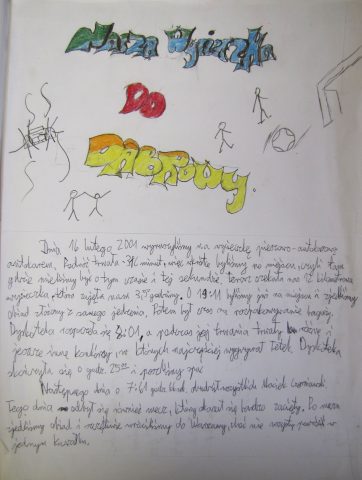 Nasza Wycieczka
Do
Dąbrowy.
Dnia 16 lutego, 2001 wyruszyliśmy na wycieczkę pieszo-autobusową
autokarem. Podróż trwała minut, więc wkrótce byliśmy na miejscu, czyli tam
gdzie mieliśmy być o tym czasie i tej sekundzie, teraz czekała nas 12 kilometrowa
wycieczka, która zajęła nam 3,5 godziny. O 19:11 byliśmy już na miejscu i zjedliśmy
obiad złożony z samego jedzenia. Potem był czas na rozpakowywanie bagaży.
Dyskoteka rozpoczęła się 01, a podczas jej trwania trwały różne i
jeszcze inne konkursy na których najczęściej wygrywał Tetek. Dyskoteka
skończyła się o godz. 25:00 i poszliśmy spać
Następnego dnia o 7:61 godz. obudził wszystkich Maciek
Tego dnia odbył się również mecz, który okazał się bardzo zacięty. Po meczu
zjedliśmy obiad i szczęśliwie wróciliśmy do Warszawy, choć nie wszyscy powrócili w
jednym kawałku.